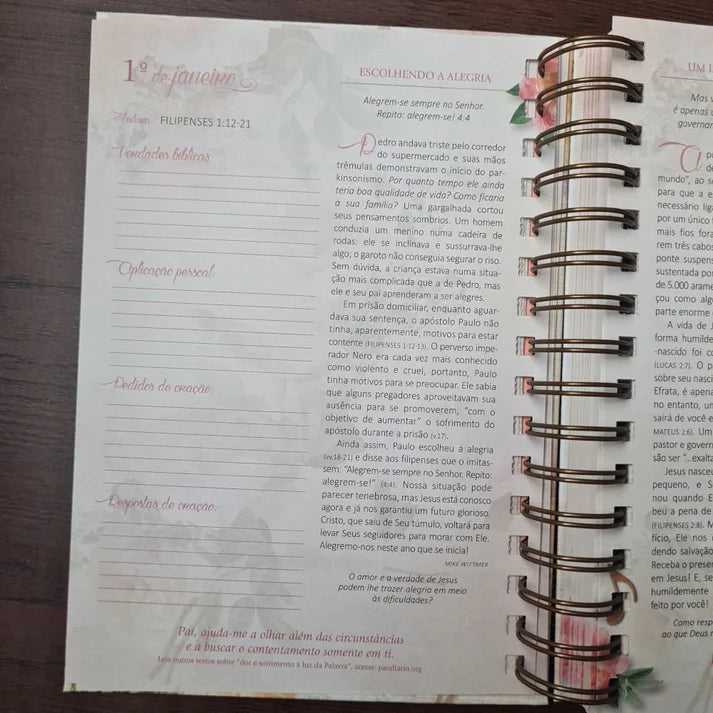 1º de janeiro
Leitura: FILIPENSES 1:12-21
Verdades bíblicas:
Aplicação pessoal:
Pedidos de oração:
Respostas de oração:
ESCOLHENDO A ALEGRIA
Alegrem-se sempre no Senhor.
Repito: alegrem-se! 4:4
Pedro andava triste pelo corredor
do supermercado e suas mãos
trêmulas demonstravam o início do par-
kinsonismo. Por quanto tempo ele ainda
teria boa qualidade de vida? Como ficaria
a sua família? Uma gargalhada cortou
seus pensamentos sombrios. Um homem
conduzia um menino numa cadeira de
rodas: ele se inclinava e sussurrava-lhe
algo; o garoto não conseguia segurar o riso.
Sem dúvida, a criança estava numa situa-
ção mais complicada que a de Pedro, mas
ele e seu pai aprenderam a ser alegres.
Em prisão domiciliar, enquanto aguar-
dava sua sentença, o apóstolo Paulo não
tinha, aparentemente, motivos para estar
contente (FILIPENSES 1:12-13). O perverso impe-
rador Nero era cada vez mais conhecido
como violento e cruel, portanto, Paulo
tinha motivos para se preocupar. Ele sabia
que alguns pregadores aproveitavam sua
ausência para se promoverem, “com o
objetivo de aumentar” o sofrimento do
apóstolo durante a prisão (v.17).
Ainda assim, Paulo escolheu a alegria
(vv.18-21) e disse aos filipenses que o imitas-
sem: “Alegrem-se sempre no Senhor. Repito:
alegrem-se!” (4:4). Nossa situação pode
parecer tenebrosa, mas Jesus está conosco
agora e já nos garantiu um futuro glorioso.
Cristo, que saiu de Seu túmulo, voltará para
levar Seus seguidores para morar com Ele.
Alegremo-nos neste ano que se inicia!
MIKE WITTMER
O amor e a verdade de Jesus
podem lhe trazer alegria em meio
às dificuldades?
Pai, ajuda-me a olhar além das circunstâncias
e a buscar o contentamento somente em ti.
Leia outros textos sobre “dor e sofrimento à luz da Palavra”, acesse: paodiario.org
UM
Mas
é apenas
governar
mundo”, ao s
para que a e
necessário lig
por um único
mais fios fora
rem três cabos
ponte suspens
sustentada por
de 5.000 arame
çou como alg
parte enorme
A vida de J
forma humilde
-nascido foi co
(LUCAS 2:7). O p
sobre seu nasci
Efrata, é apena
no entanto, um
sairá de você e
MATEUS 2:6). Um
pastor e govern
são ser “...exalta
Jesus nasceu
pequeno, e S
nou quando E
beu a pena de
(FILIPENSES 2:8). M
fício, Ele nos
dendo salvação
Receba o presen
em Jesus! E, se
humildemente
feito por você!
Como resp
ao que Deus